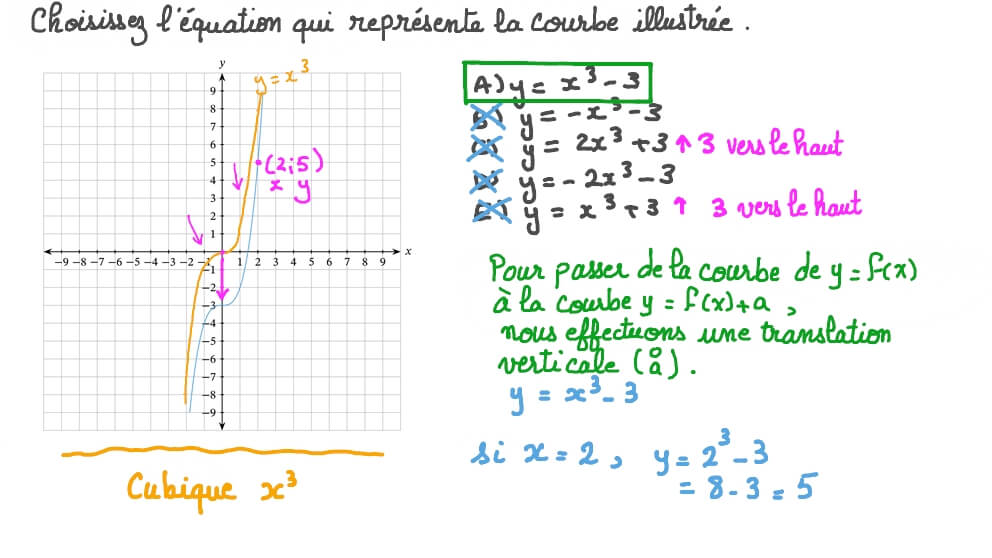 Choisissez l'équation qui représente la courbe illustrée.
y
y = x³
9
8
7
6
5
4
3
2
1
(2;5)
x y
−9 −8 −7 −6 −5 −4 −3 −2 −1 1 2 3 4 5 6 7 8 9 x
−1
−2
−3
−4
−5
−6
−7
−8
−9
Cubique x³
A) y = x³ − 3
B) y = −x³ − 3
C) y = 2x³ + 3 ↑ 3 vers le haut
D) y = − 2x³ − 3
E) y = x³ + 3 ↑ 3 vers le haut
Pour passer de la courbe de y = f(x)
à la courbe y = f(x)+a ,
nous effectuons une translation
verticale (0 a).
y = x³ − 3
si x = 2 , y = 2³ − 3
= 8 − 3 = 5